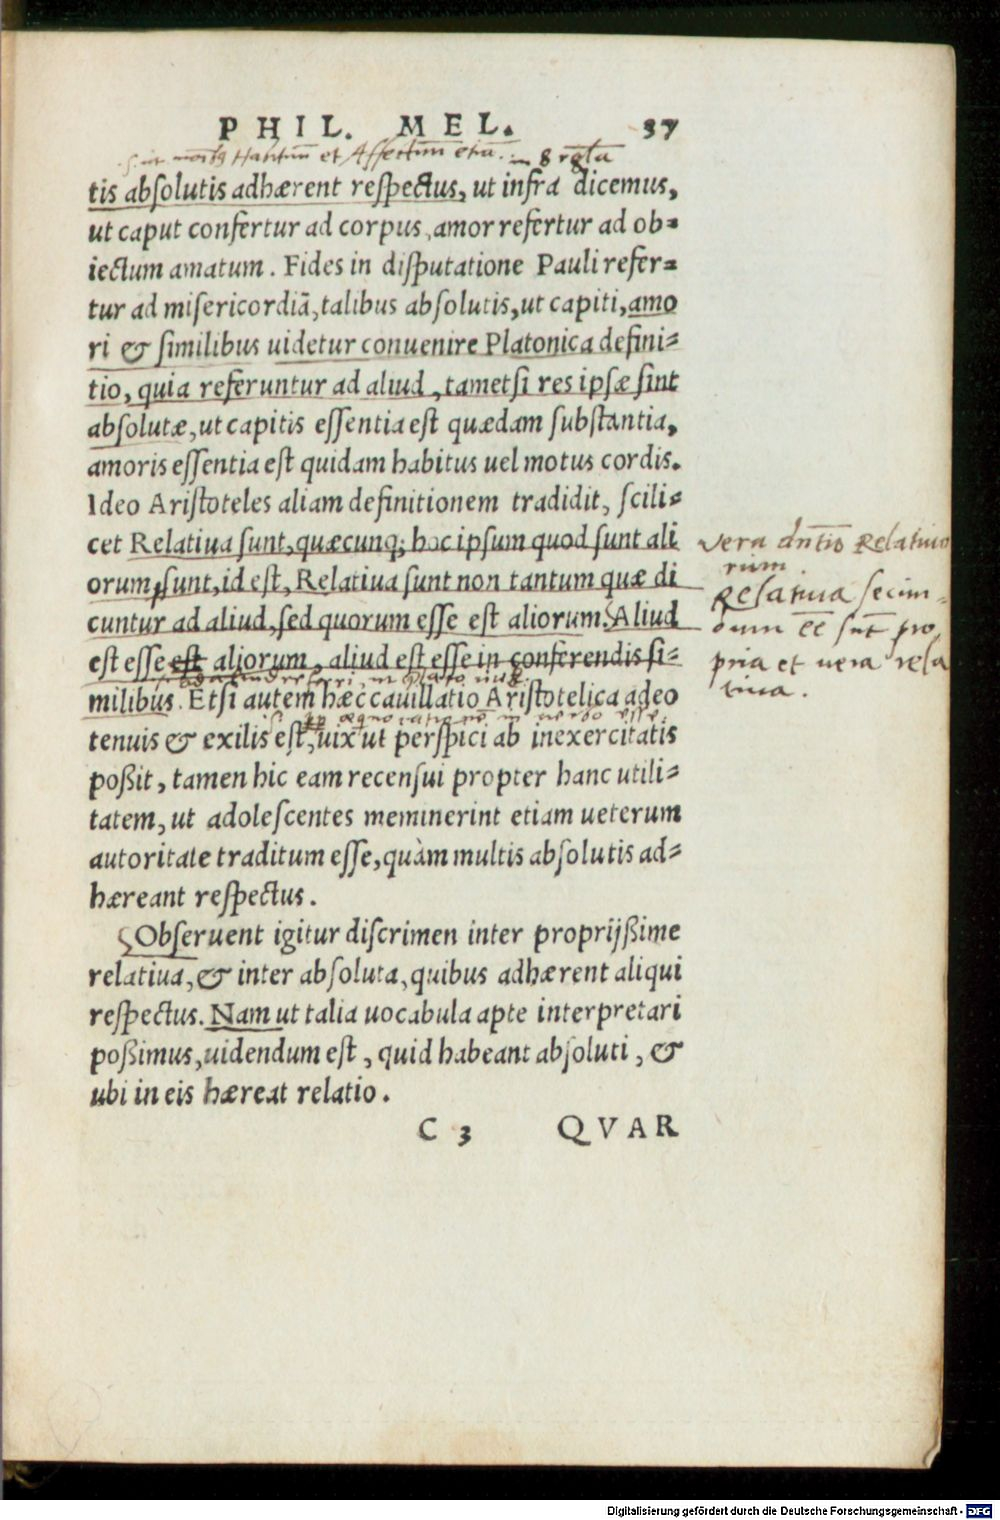 PHIL. MEL. 37
et Affectum etiā. in 8 regla
tis absolutis adhærent respectus, ut infra dicemus,
ut caput confertur ad corpus, amor refertur ad ob=
iectum amatum. Fides in disputatione Pauli refer=
tur ad misericordiā, talibus absolutis, ut capiti, amo
ri & similibus uidetur conuenire Platonica defini=
tio, quia referuntur ad aliud, tametsi res ipsæ sint
absolutæ, ut capitis essentia est quædam substantia,
amoris essentia est quidam habitus uel motus cordis.
Ideo Aristoteles aliam definitionem tradidit, scili=
cet Relatiua sunt, quæcunq; hoc ipsum quod sunt ali
orum sunt, id est, Relatiua sunt non tantum quæ di
cuntur ad aliud, sed quorum esse est aliorum. Aliud
est esse est aliorum, aliud est esse in conferendis si=
ad aliud referri, ut Plato
milibus. Etsi autem hæc cauillatio Aristotelica adeo
tenuis & exilis est, uix ut perspici ab inexercitatis
poßit, tamen hic eam recensui propter hanc utili=
tatem, ut adolescentes meminerint etiam ueterum
autoritate traditum esse, quàm multis absolutis ad=
hæreant respectus.
Obseruent igitur discrimen inter proprijßime
relatiua, & inter absoluta, quibus adhærent aliqui
respectus. Nam ut talia uocabula apte interpretari
poßimus, uidendum est, quid habeant absoluti, &
ubi in eis hæreat relatio.
C 3 QVAR
vera dn̄tio Relatiuo
rum.
Relatiua secun=
dum eē sūt pro
pria et uera rela
tiua.
Digitalisierung gefördert durch die Deutsche Forschungsgemeinschaft - DFG